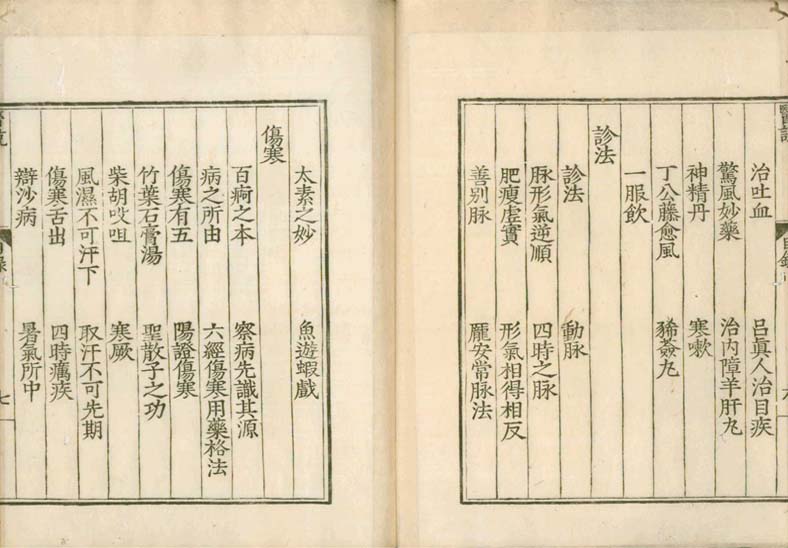 治吐血 呂眞人治目疾
驚風妙藥 治内障羊肝丸
神精丹 寒嗽
丁公藤愈風 豨薟丸
一服飲
診法
診法 動脉
脉形氣逆順 四時之脉
肥瘦虛實 形氣相得相反
善别脉 龐安常脉法
太素之妙 魚遊蝦戲
傷寒
百病之本 察病先識其源
病之所由 六經傷寒用藥格法
傷寒有五 陽證傷寒
竹葉石膏湯 聖散子之功
柴胡㕮咀 寒厥
風濕不可汗下 取汗不可先期
傷寒舌出 四時癘疾
辯沙病 暑氣所中
七